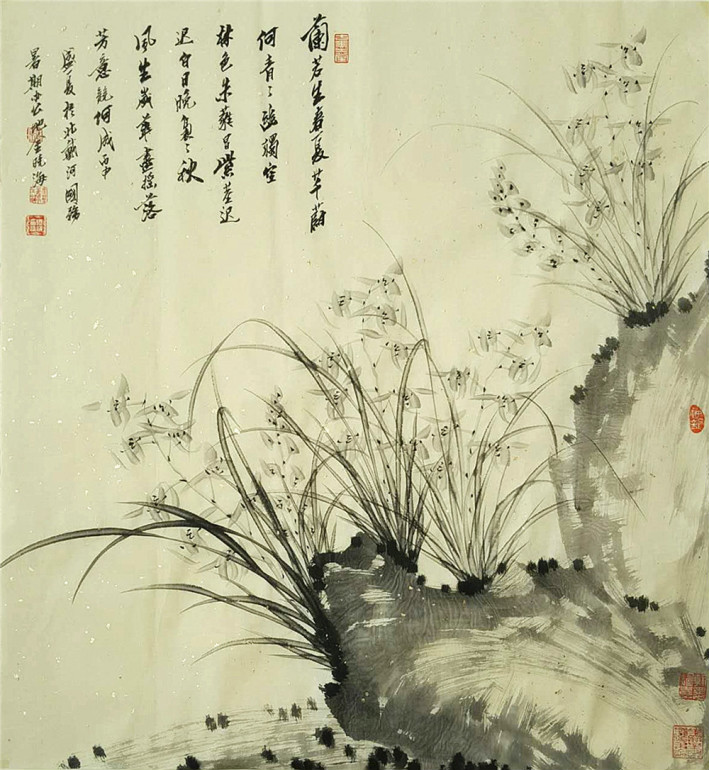 蘭若生春夏芊蔚
何青〻幽獨空
林色朱蕤冒紫莖迟
迟白日晚裊〻秋
風生歲華盡搖落
芳意競何成丙申
盛夏於北戴河國務
暑期办公地曉海